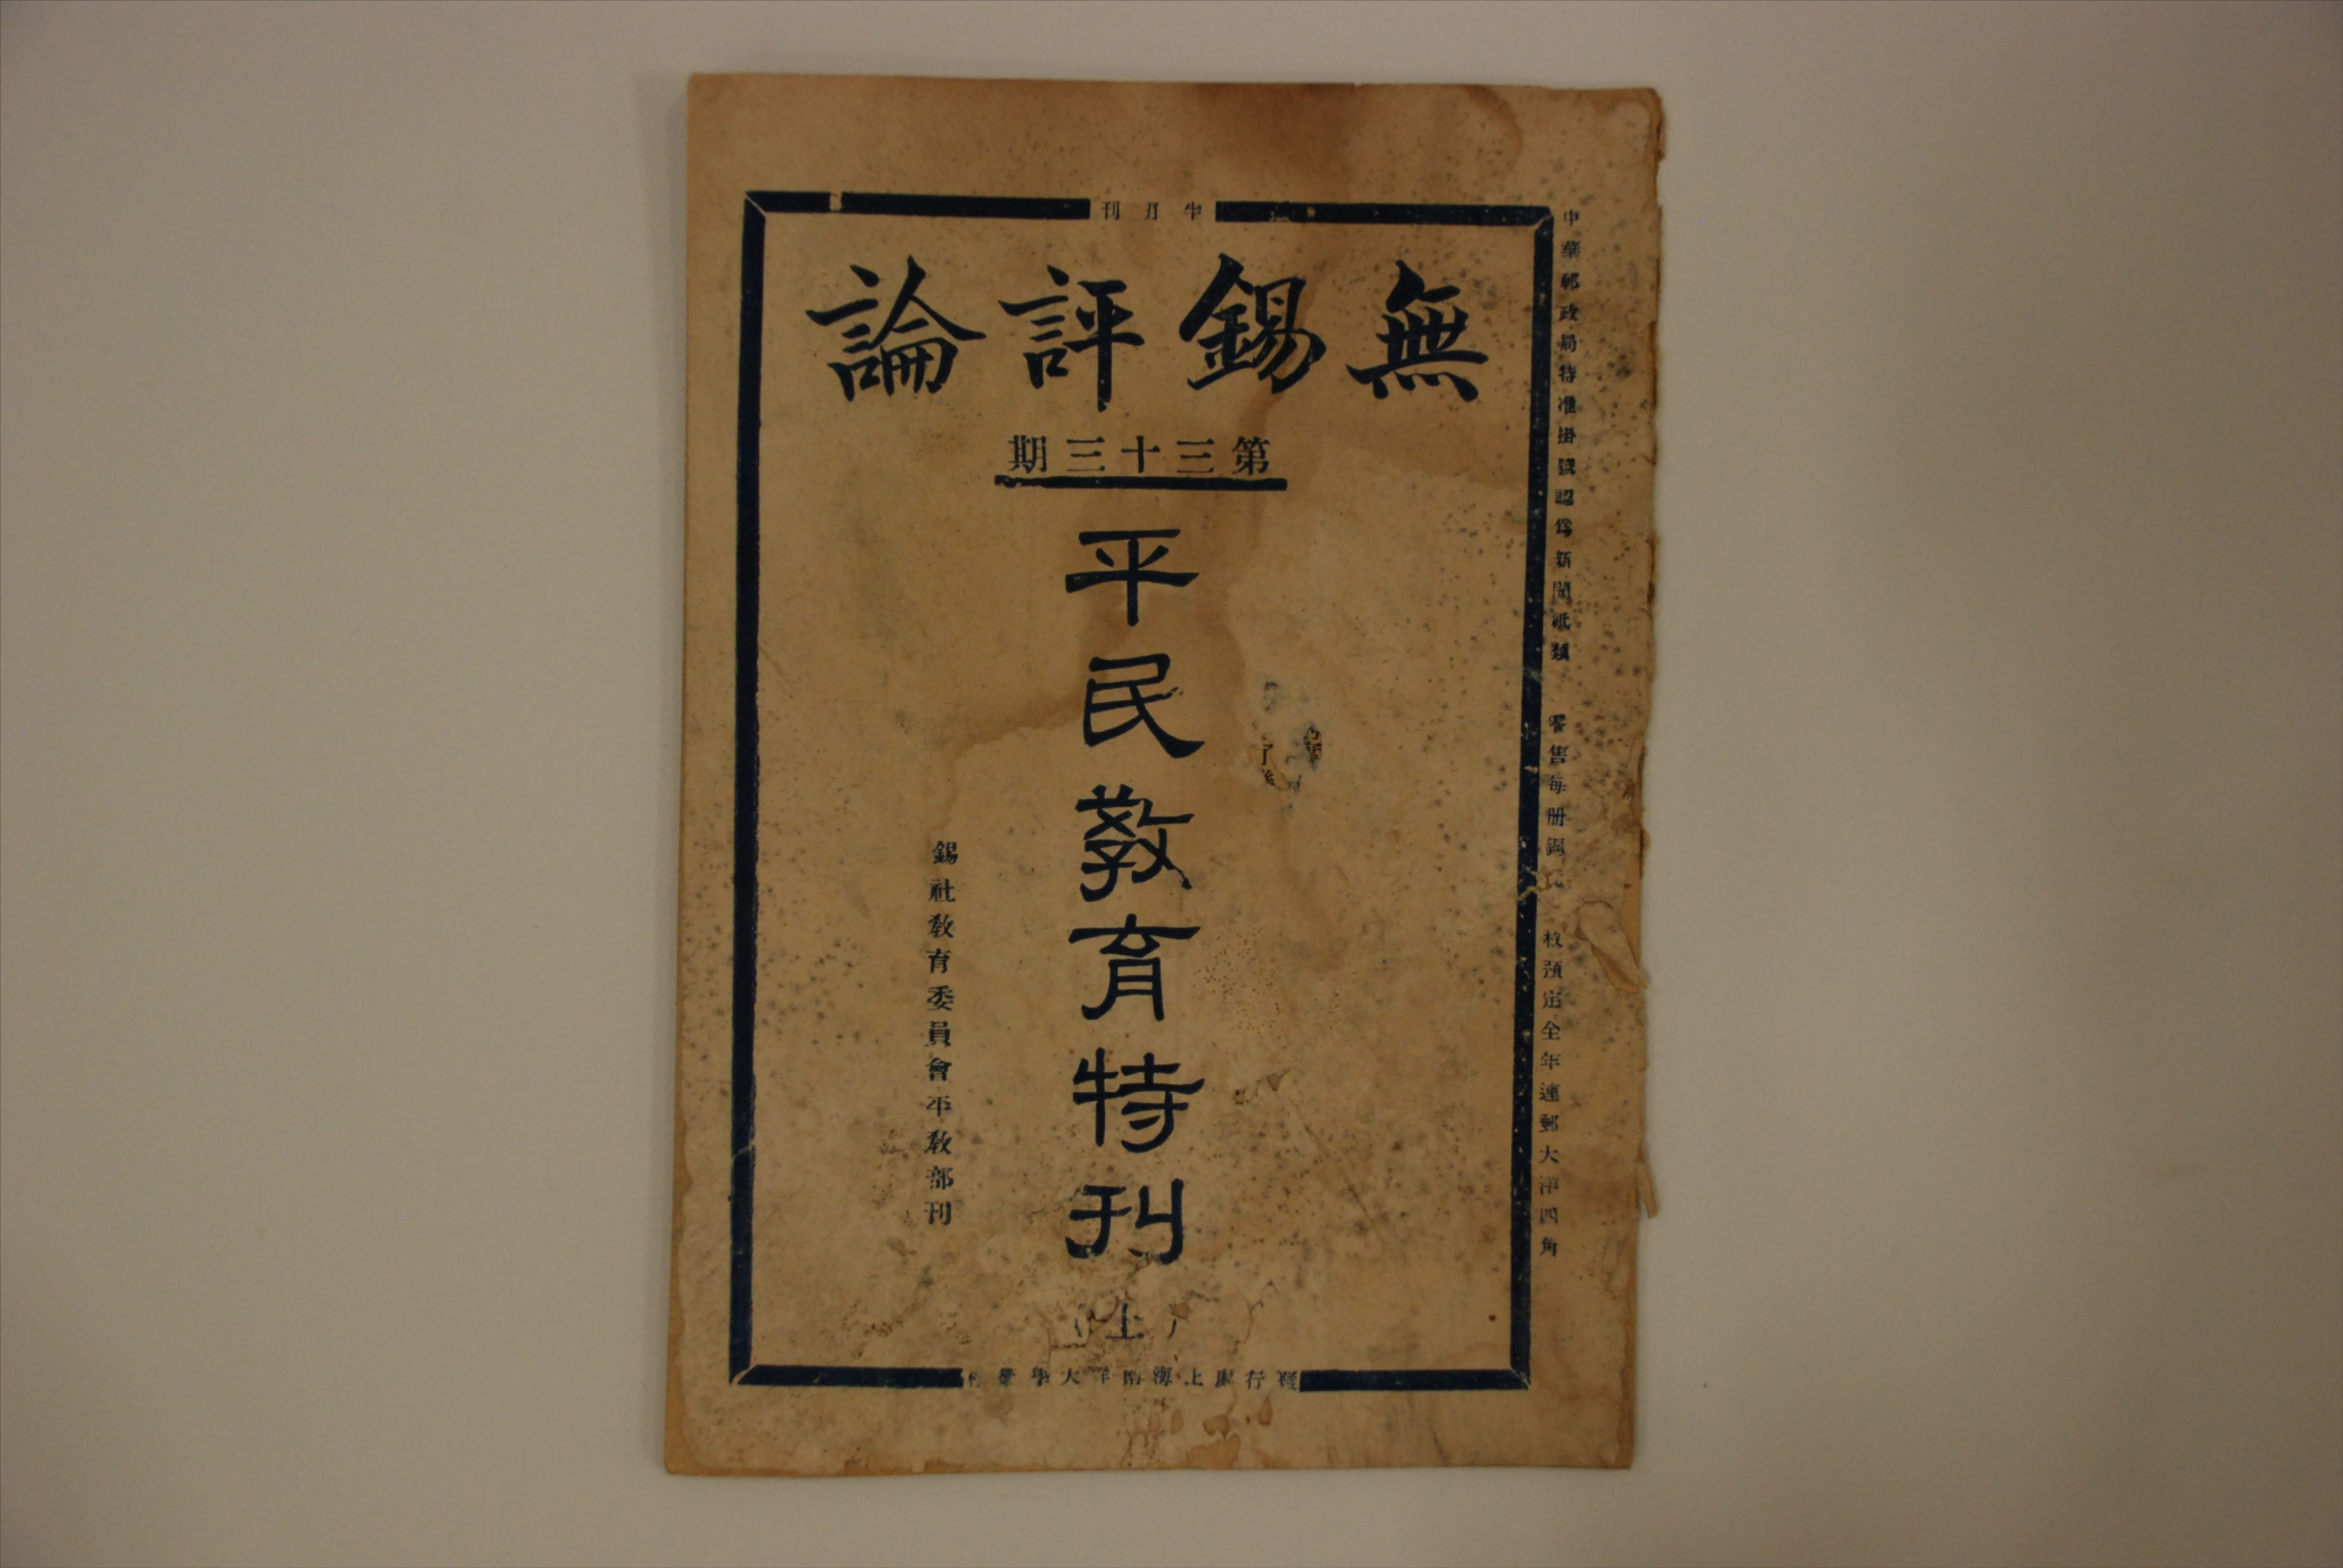 半月刊
無錫評論
第三十三期
平民教育特刊
上
錫社教育委員會平教部刊
中華郵政局特准掛號認爲新聞紙類
零售每册銅 枚預定全年連郵大洋四角
發行處上海南洋大學